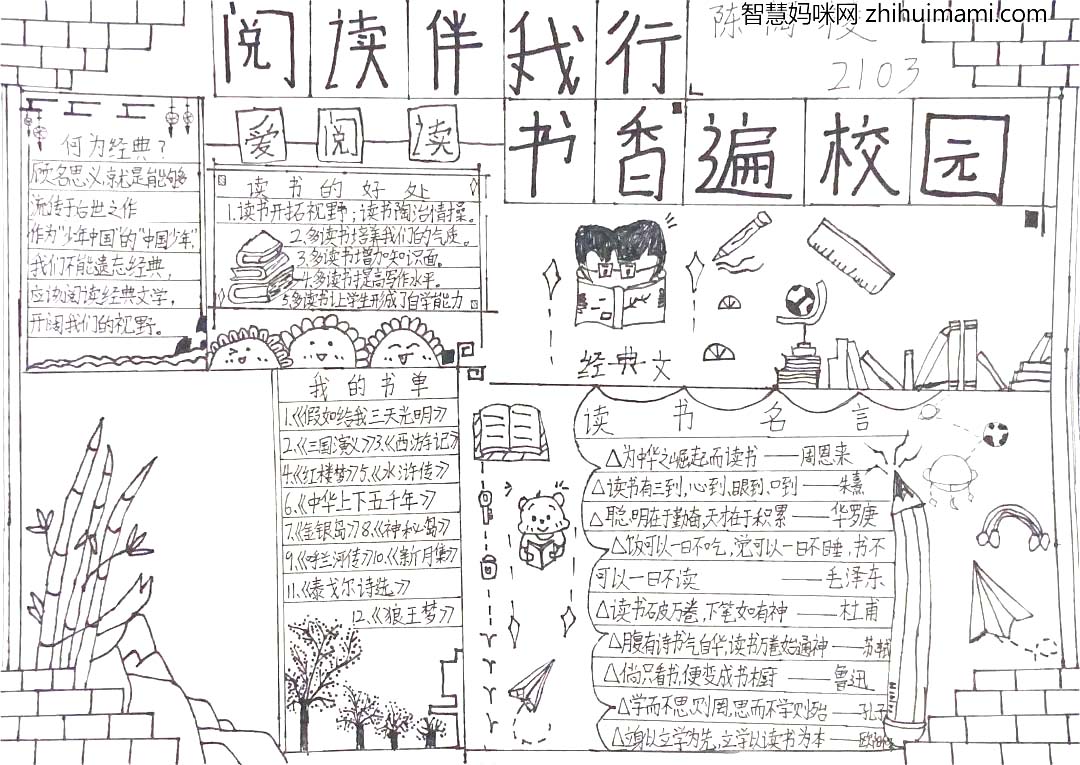 智慧妈咪网 zhihuimami.com
阅读伴我行
2103
书香遍校园
爱阅读
何为经典？
顾名思义,就是能够
流传于后世之作
作为“少年中国”的“中国少年”
我们不能遗忘经典，
应该阅读经典文学，
开阔我们的视野。
读书的好处
1.读书开拓视野；读书陶冶情操。
2.多读书培养我们的气质。
3.多读书增加知识面。
4.多读书提高写作水平。
5.多读书让学生形成了自学能力
经典文
我的书单
1.《假如给我三天光明》
2.《三国演义》3.《西游记》
4.《红楼梦》5.《水浒传》
6.《中华上下五千年》
7.《金银岛》8.《神秘岛》
9.《呼兰河传》10.《新月集》
11.《泰戈尔诗选》
12.《狼王梦》
读书名言
△为中华之崛起而读书——周恩来
△读书有三到,心到、眼到、口到——朱熹
△聪明在于勤奋,天才在于积累——华罗庚
△饭可以一日不吃，觉可以一日不睡,书不
可以一日不读——毛泽东
△读书破万卷,下笔如有神——杜甫
△腹有诗书气自华,读书万卷始通神——苏轼
△倘只看书,便变成书橱——鲁迅
△学而不思则罔,思而不学则殆——孔子
△立身以立学为先,立学以读书为本——欧阳修